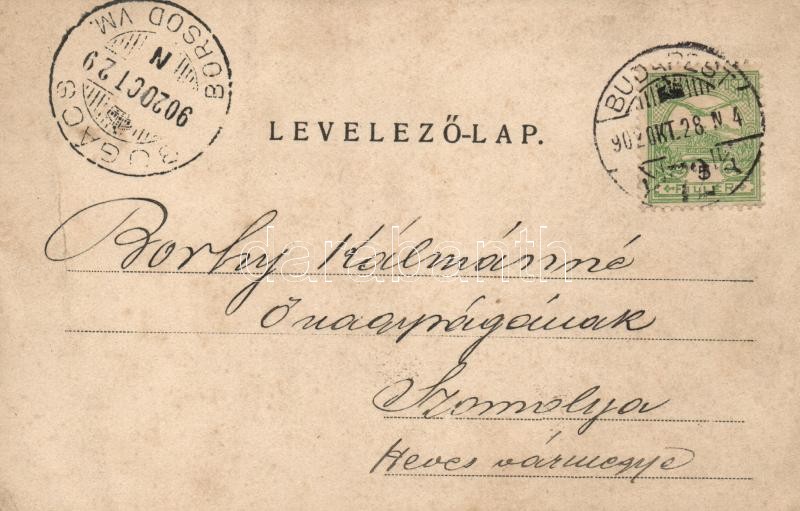 BOGÁCS
BORSOD VM.
902 OCT 29
N
BUDAPEST
902 OKT. 28. N. 4
5
FILLÉR
LEVELEZŐ-LAP.
Borhy Kálmánné
Őnagyságának
Szomolya
Heves vármegye
darabanth